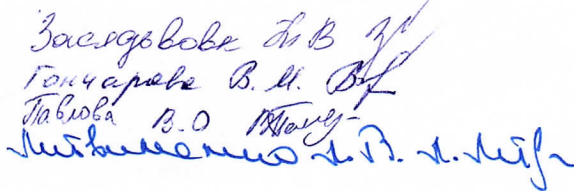 Засядьвовк Н В
Гончарова В. М.
Павлова В.О
Литвиненко Л. В.